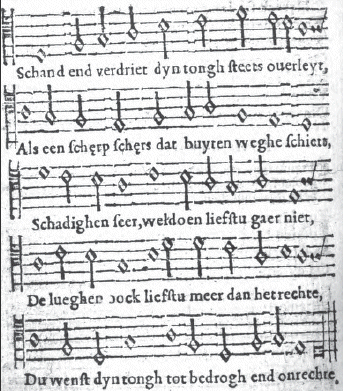 Schand end verdriet dyn tongh steets ouerleyt,
Als een scherp schęrs dat buyten weghe schiets,
Schadighen seer, weldoen liefstu gaer niet,
De lueghen oock liefstu meer dan het rechte,
Du wenst dyn tongh tot bedrogh end onrechte,